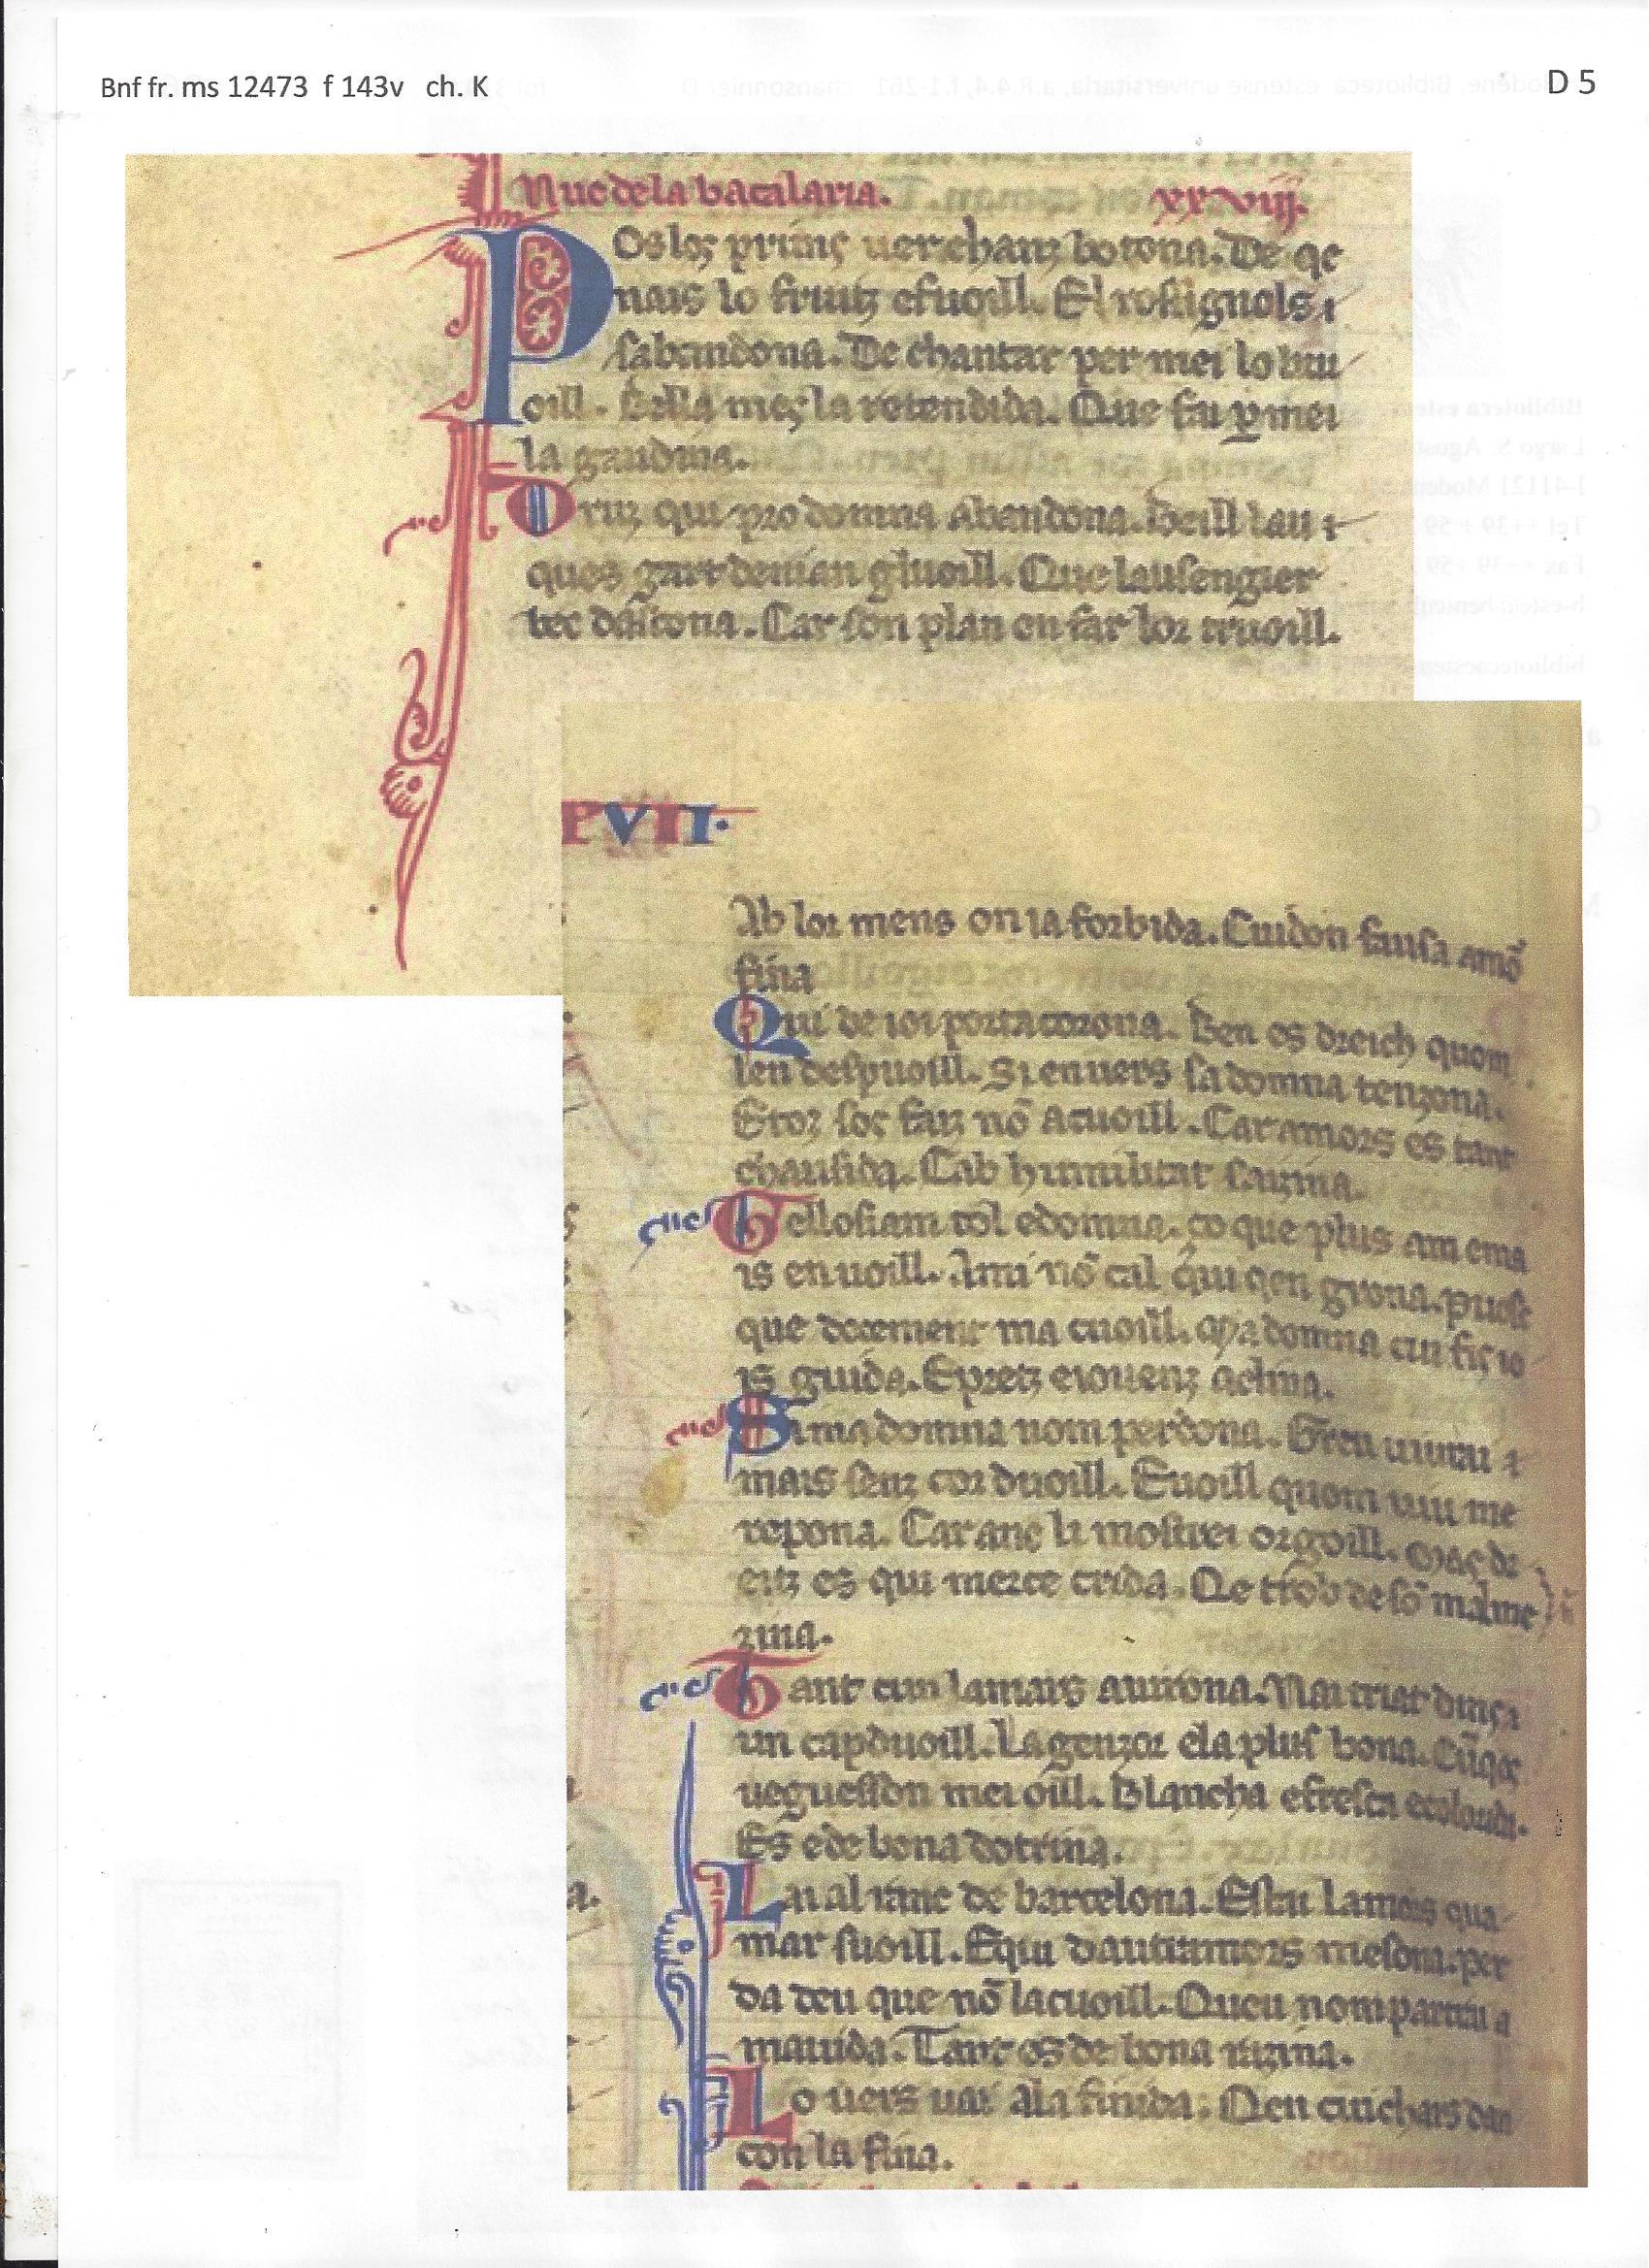 Bnf fr. ms 12473 f 143v ch. K
D 5
Nuc de la bacalaria. xxviij.
POs loz prims uerchanz botona. De qe
nais lo fruitz efuoill. El rossignols
sabandona. De chantar per mei lo bru
oill. Bella mes la retendida. Que fai p mei
la gaudina.
Druz qui pro domna abandona. Beill lau
ques gart denian gluoill. Que lausengier
bec dastona. Car son plan en far lor truoill.
PVII.
Ab lor mens onia forbida. Cuidon fausa amō
fina
Qui de ioi porta corona. Ben os dreich quom
len despuoill. Si enuers sa domna tenzona.
Etor sos faiz nō acuoill. Car amors es tant
chausida. Cab humilitat saizina.
Gellosiam tol edomna. ço que plus am ema
is en uoill. Ami nō cal qui qen grona. puois
que docement ma cuoill. Ma domna cui fis io
is guida. Epretz eiouenz aclina.
Si ma domna nom perdona. Greu uiurai
mais senz cor duoill. Euoill quom uiu me
repona. Car anc li mostrei orgoill. Mas de
eitz es qui merce crida. Qe trob de sō mal me
zina.
Tant cum la mais auirona. Nai triat dinz
un capduoill. La genzor ela plus bona. Cūqes
ueguesson mei oill. Blancha efresca ecoloridi.
Es ede bona dotrina.
Lai al rainc de barcelona. Estau lamors qua
mar suoill. Equi dautramors mesdona. per
da deu que nō lacuoill. Queu nom partrai a
ma uida. Tant os de bona razina.
Lo uers uai ala finida. Qen cuichars dan
con la fina.